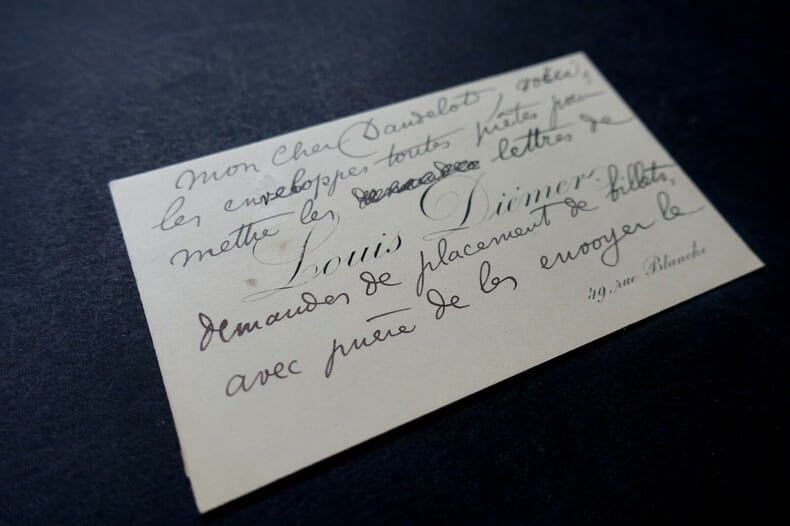 mon cher Dandelot, voici,
les enveloppes toutes prêtes pour
mettre les lettres de
Louis Diémer
demandes de placement de billets,
avec prière de les envoyer le
49, rue Blanche